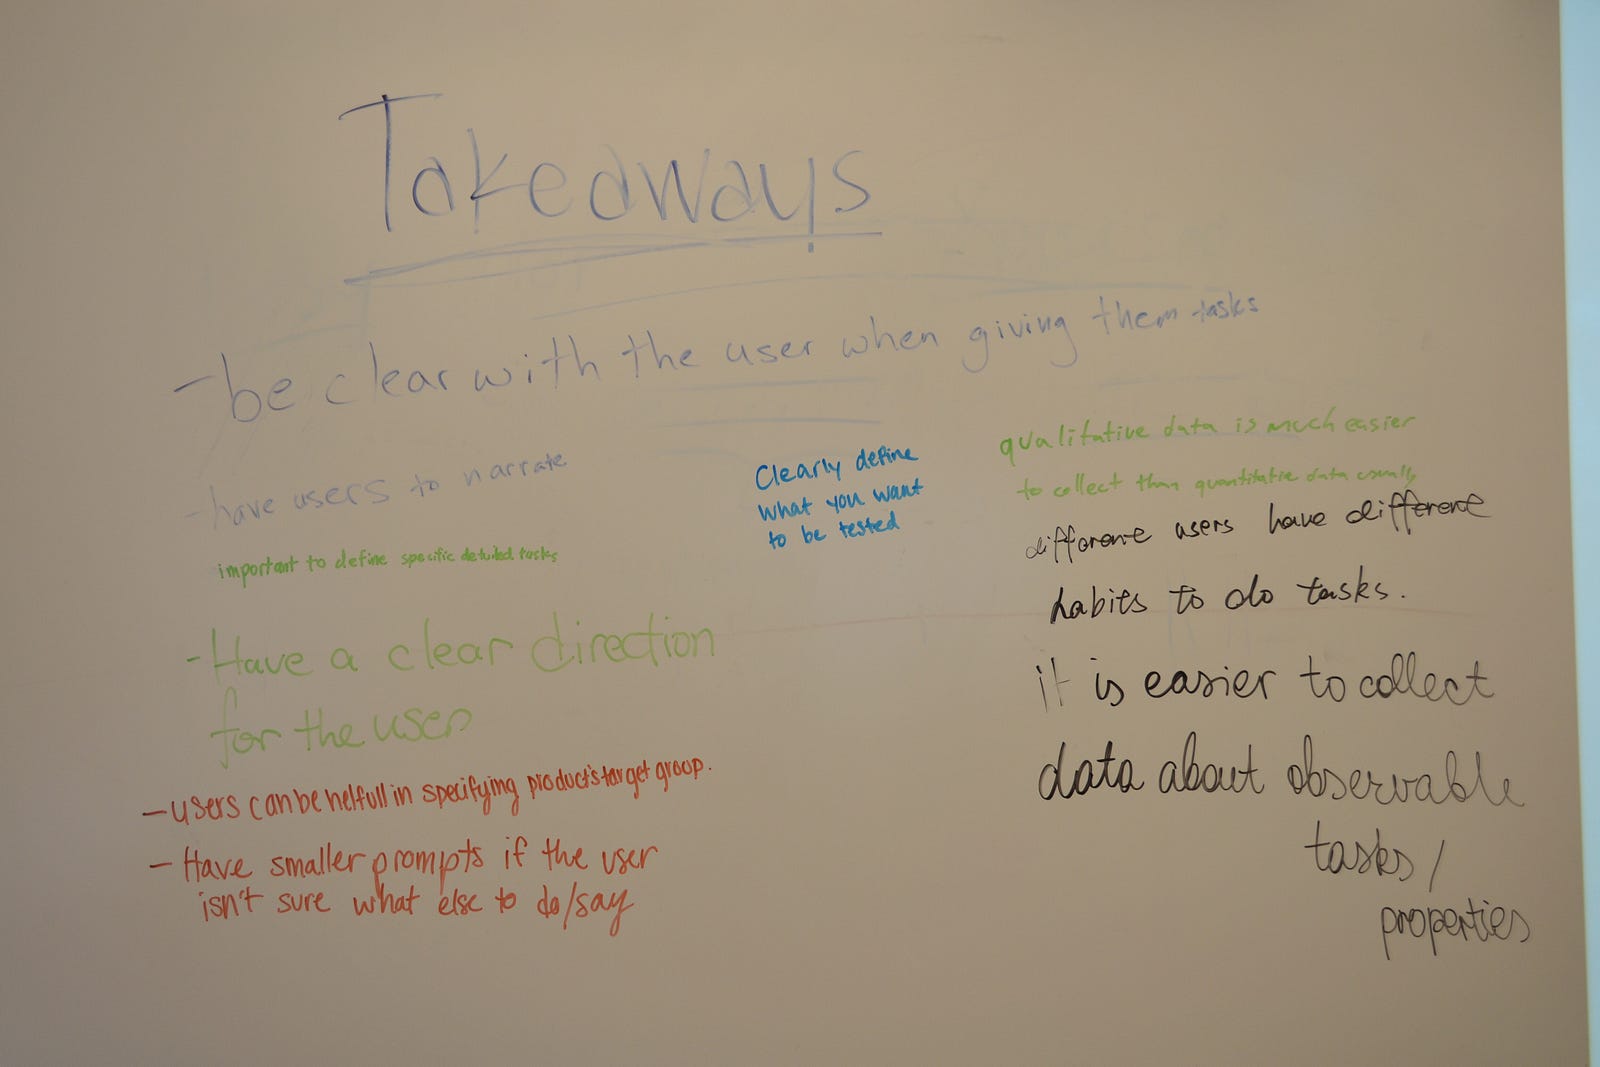 Takeaways
- be clear with the user when giving them tasks
- have users to narrate
important to define specific detailed tasks
- Have a clear direction
for the user
- users can be helfull in specifying product's target group.
- Have smaller prompts if the user
isn't sure what else to do/say
Clearly define
what you want
to be tested
qualitative data is much easier
to collect than quantitative data usually
different users have different
habits to do tasks.
it is easier to collect
data about observable
tasks/
properties